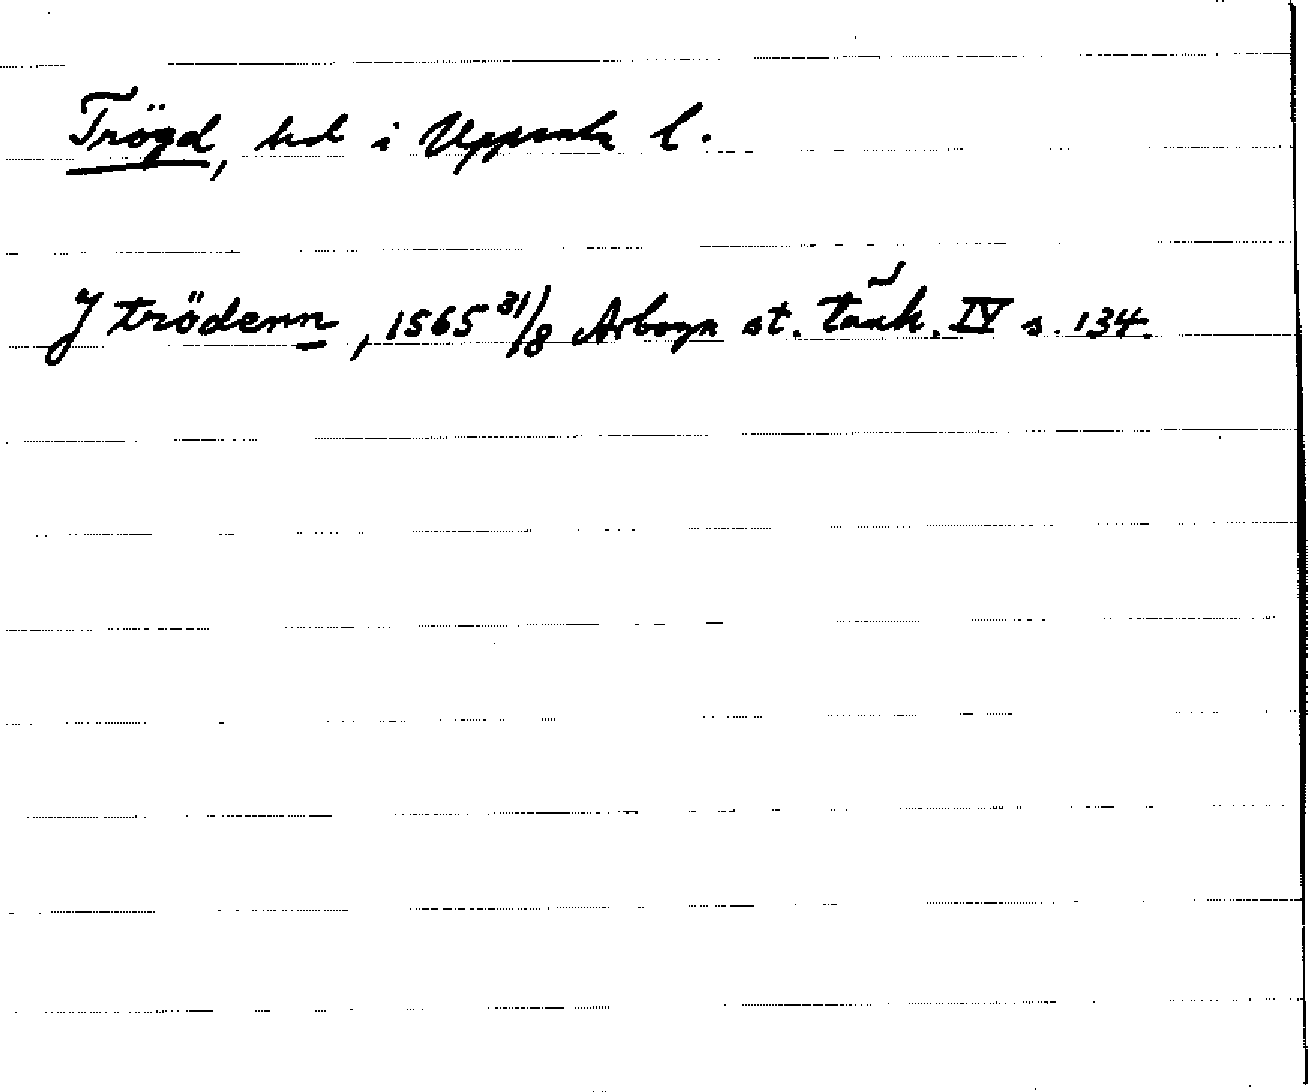 Trögd, hd i Uppsala l.
J trödenn, 1565 31/8 Arboga st. tänk. IV s. 134.